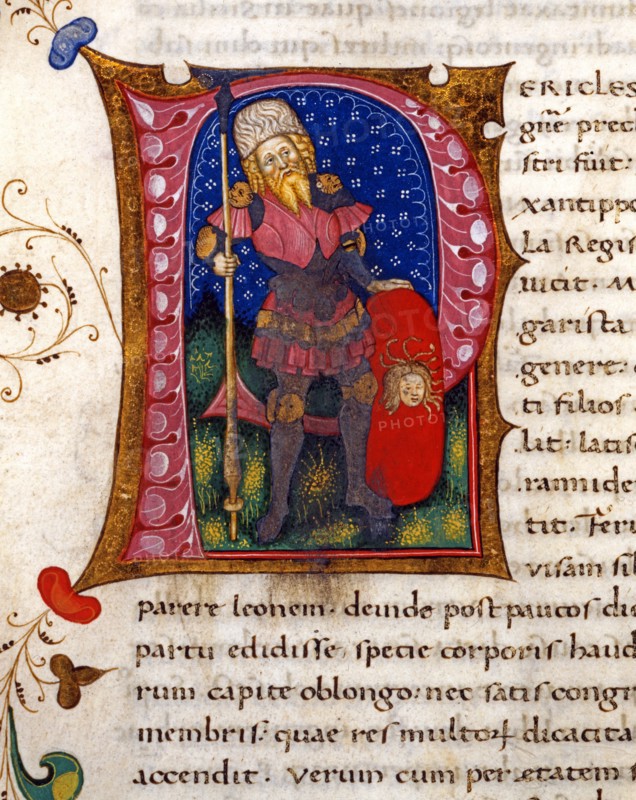 PERICLES
gñe prec
stri fuit:
xantippo
La Regis
uicit. M
garista
genere:
ti filios
lit: latis
rannide
tit. Feri
visam sil
parere leonem. deinde post paucos die
partu edidisse specie corporis haud
rum capite oblongo: nec satis congr
membris. quae res multoꝝ dicacita
accendit. Verum cum per etatem